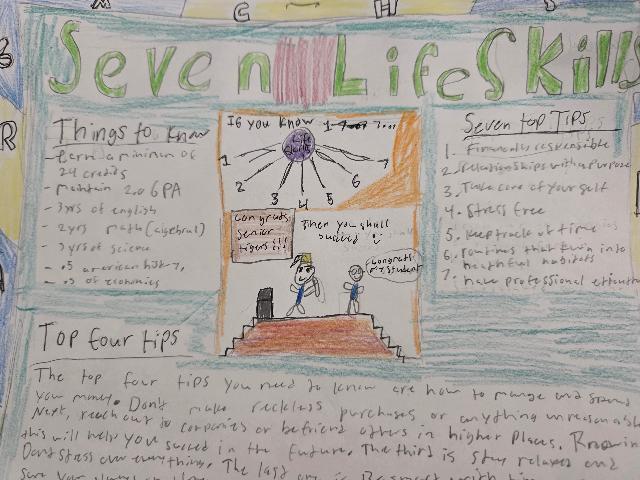 M C H
R
Seven Life Skills
Things to know
- Earn a minimum of
24 credits
- maintain 2.0 GPA
- 3yrs of english
- 2yrs math (algebra 1)
- 3yrs of science
- .5 american history,
- .5 of economics
If you know 1 7...
Life skills
1 2 3 4 5 6 7
Congrats
senior
tigers!!!
Then you shall
succeed
Congrats
Mr student
Seven top Tips
1. Financially responsible
2. Relationships with a purpose
3. Take care of your self
4. Stress free
5. keep track of time
6. routines that turn into
healthful habitats
7. have professional
Top four tips
The top four tips you need to know are how to mange and spend
your money. Dont make reckless purchases or anything unreasonable
Next, reach out to companies or befriend others in higher places.
this will help you succed in the future. The third is stay relaxed and
Dont stress over everything. The last one is Be smart with time